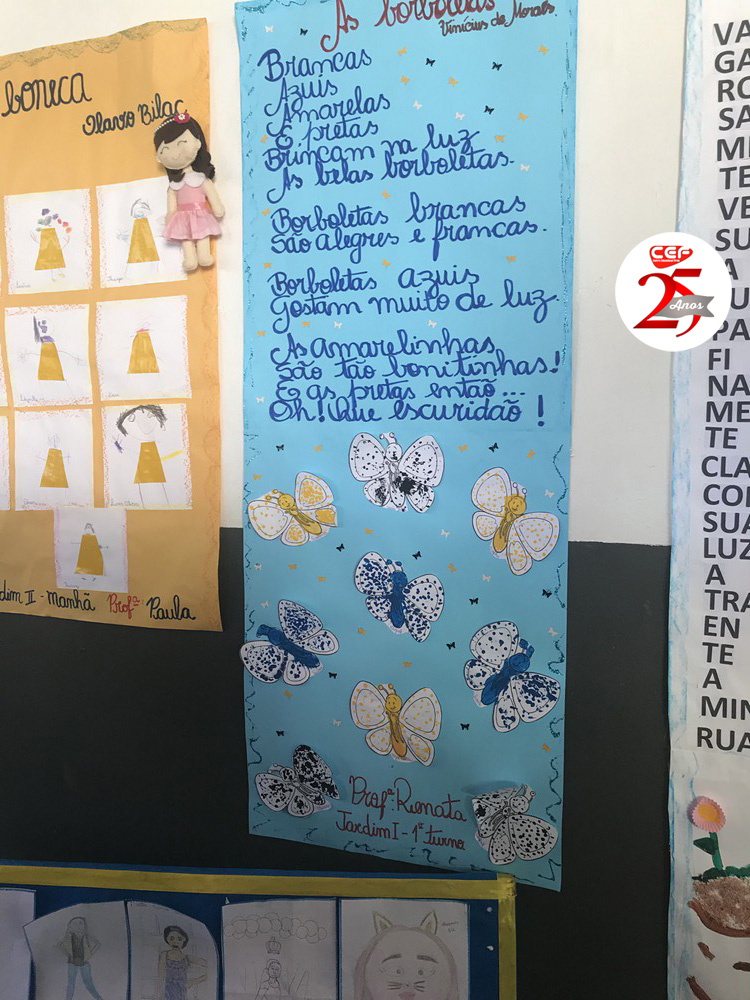 boneca
Olavo Bilac
dim II - Manhã Profª: Paula
As borboletas
Vinícius de Moraes.
Brancas
Azuis
Amarelas
E pretas
Brincam na luz
As belas borboletas.
Borboletas brancas
São alegres e francas.
Borboletas azuis
Gostam muito de luz
As amarelinhas
São tão bonitinhas!
E as pretas então...
Oh! Que escuridão!
Profª: Renata
Jardim I - 1º turno
CEP
25 Anos
VA
GA
RO
SA
ME
TE
VE
SU
A
PA
FI
NA
ME
TE
CLA
COI
SUA
LUZ
A
TRA
EN
TE
A
MIN
RUA